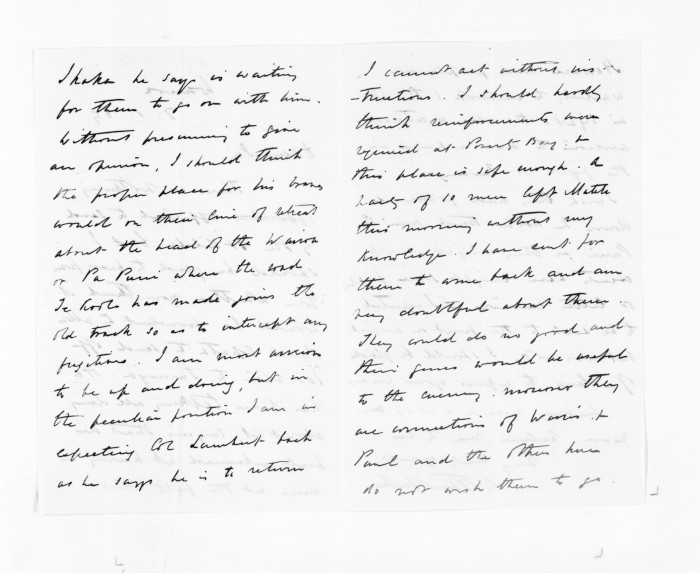 Ihaka he says is waiting
for them to go on with him.
Without presuming to give
an opinion, I should think
the proper place for his braves
would on their line of retreat
about the head of the Wairoa
or Pa Puni where the road
Te Kooti has made joins the
old track so as to intercept any
fugitives. I am most anxious
to be up and doing, but in
the peculiar position I am in
expecting Col Lambert back
as he says he is to return
I cannot act without ins-
-tructions. I should hardly
think reinforcements were
required at Poverty Bay. &
this place is safe enough. A
party of 10 men left
this morning without my
knowledge. I have sent for
them to come back and am
very doubtful about them
They could do no good and
their guns would be useful
to the enemy. moreover they
are connections of &
Paul and the others here
do not wish them to go.